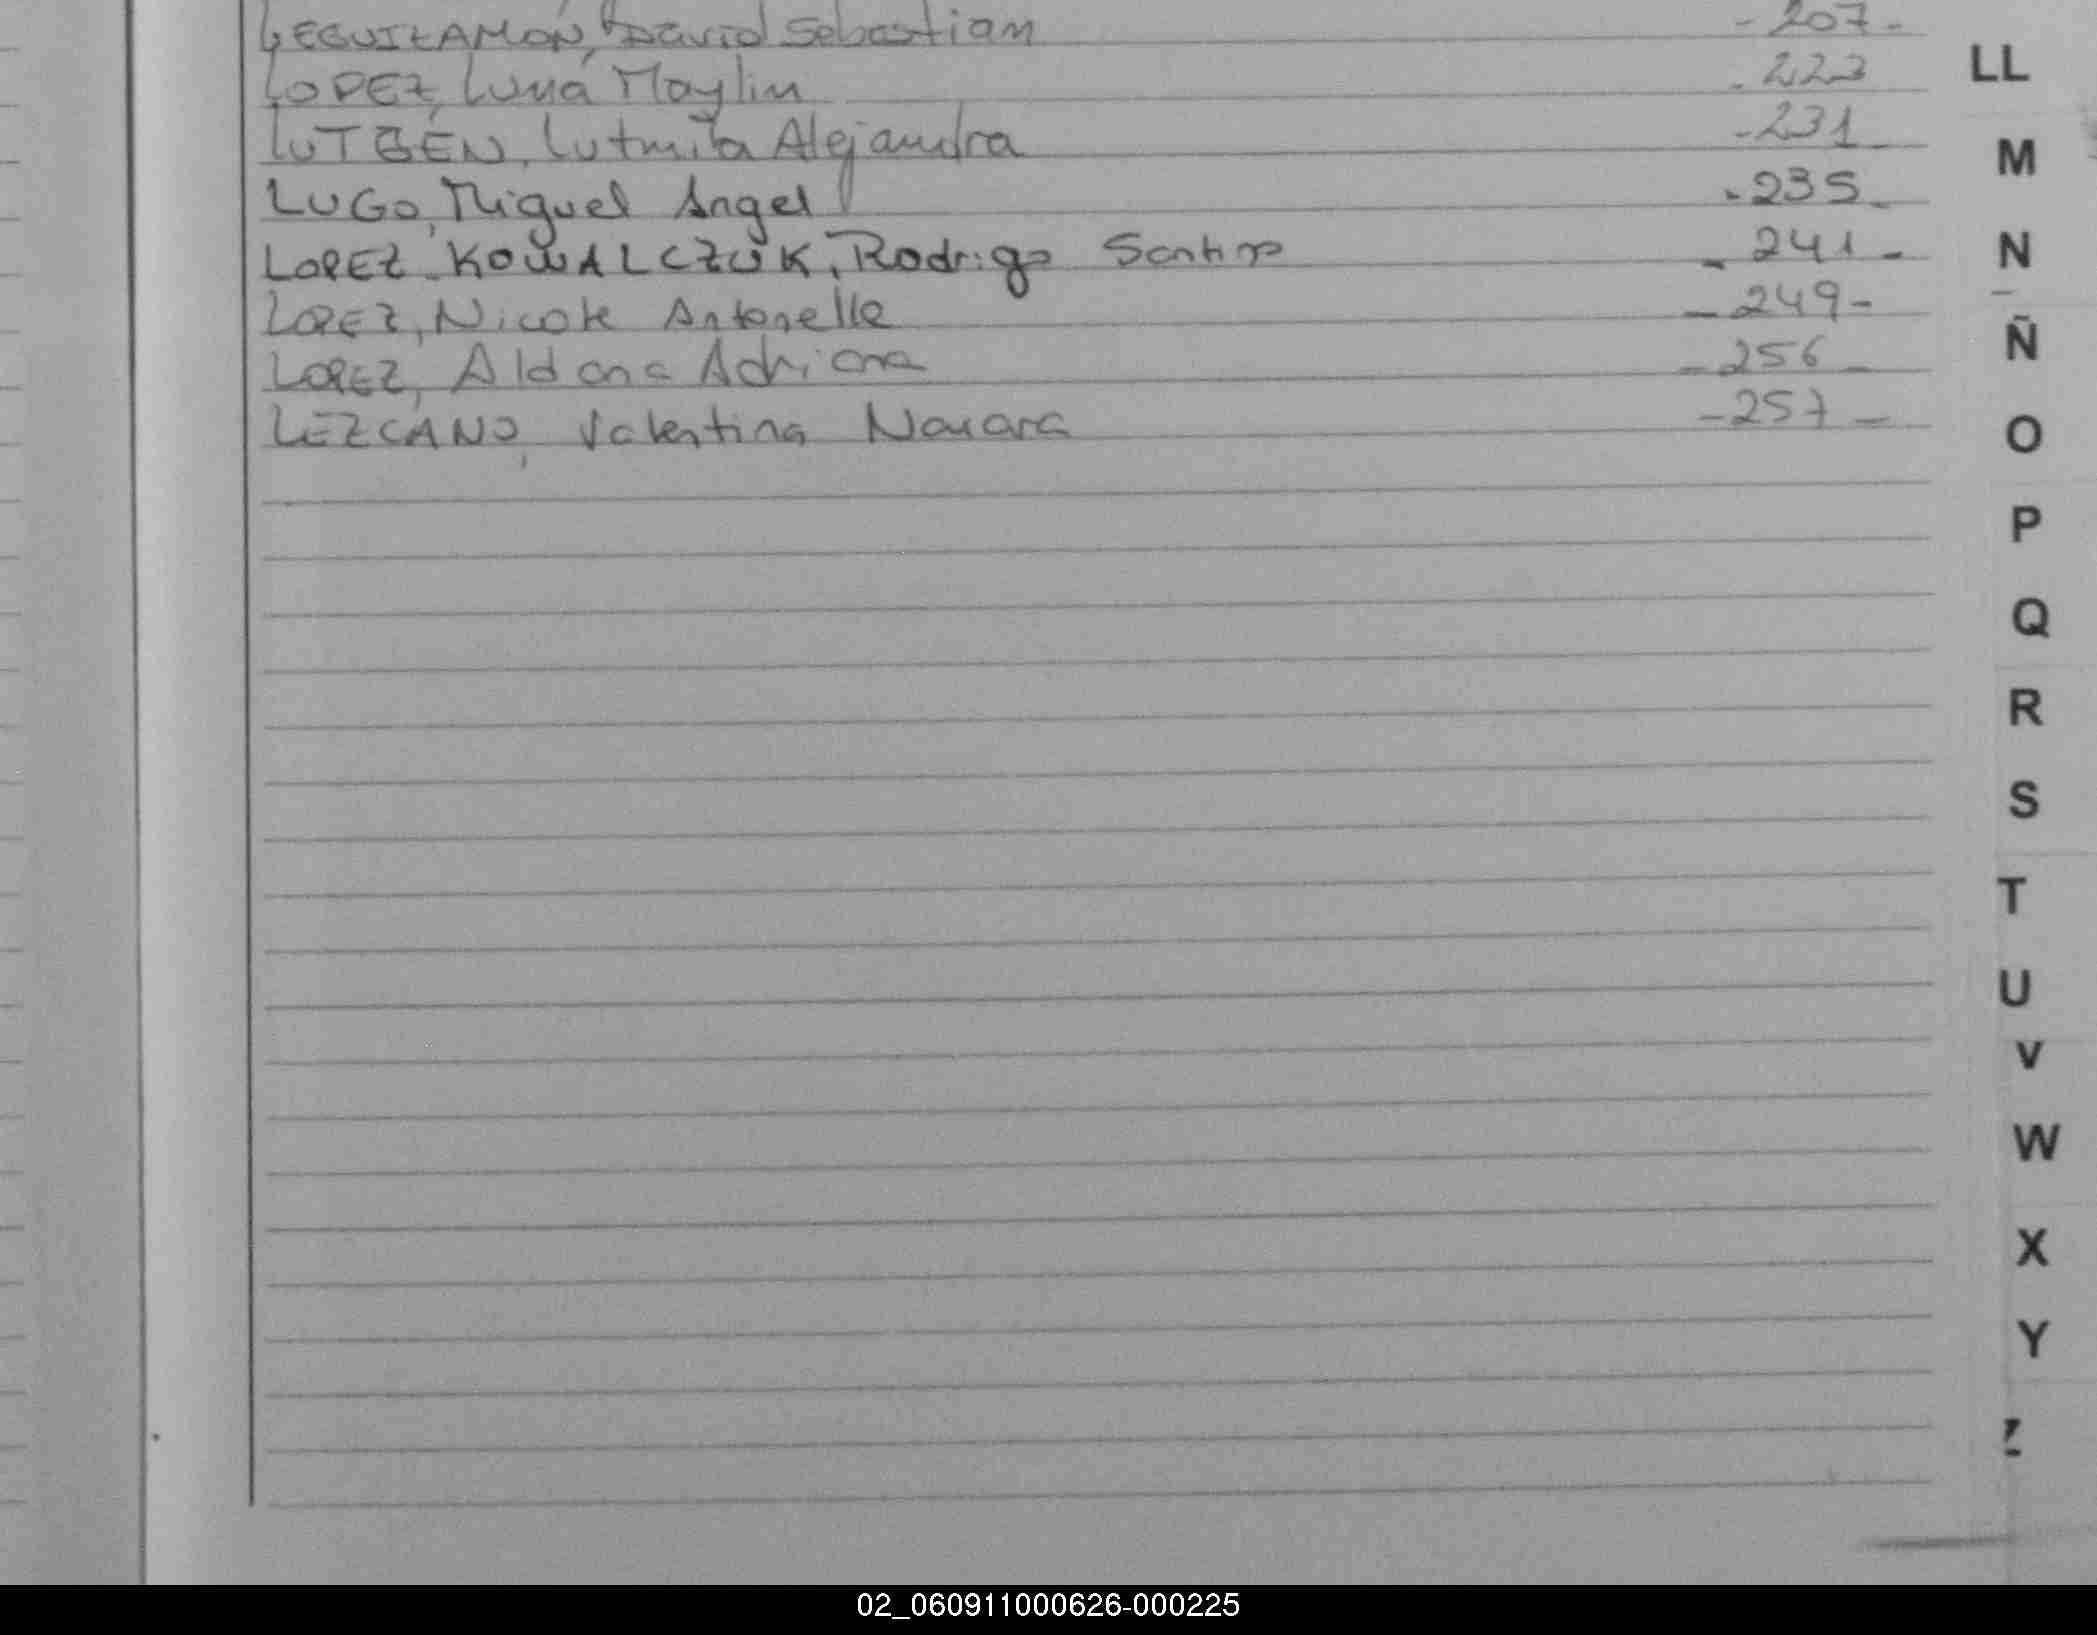 LEGUIZAMON, David Sebastian -207-
LOPEZ, Luna Maylin -223
LUTGEN, Lutmila Alejandra -231-
LUGO, Miguel Angel -235-
LOPEZ KOWALCZUK, Rodrigo Santino -241-
LOPEZ, Nicole Antonella -249-
LOPEZ, Aldana Adriana -256-
LEZCANO, Valentina Naiara -257-
LL
M
N
Ñ
O
P
Q
R
S
T
U
V
W
X
Y
Z
02_060911000626-000225